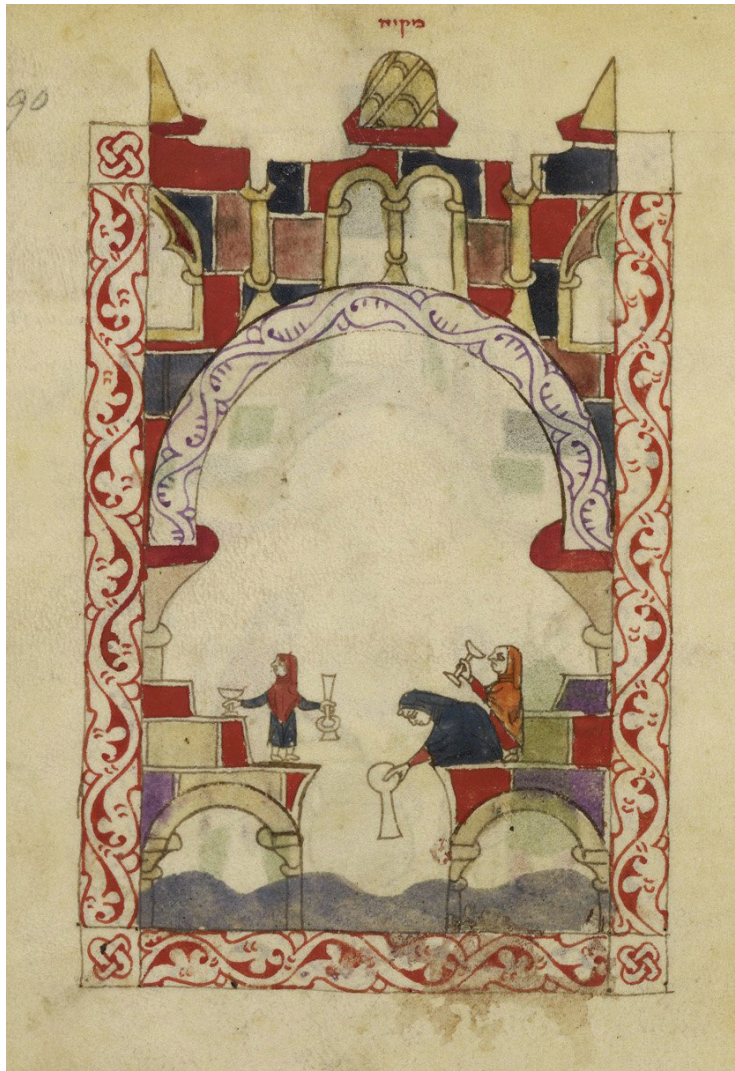 מקוה
90